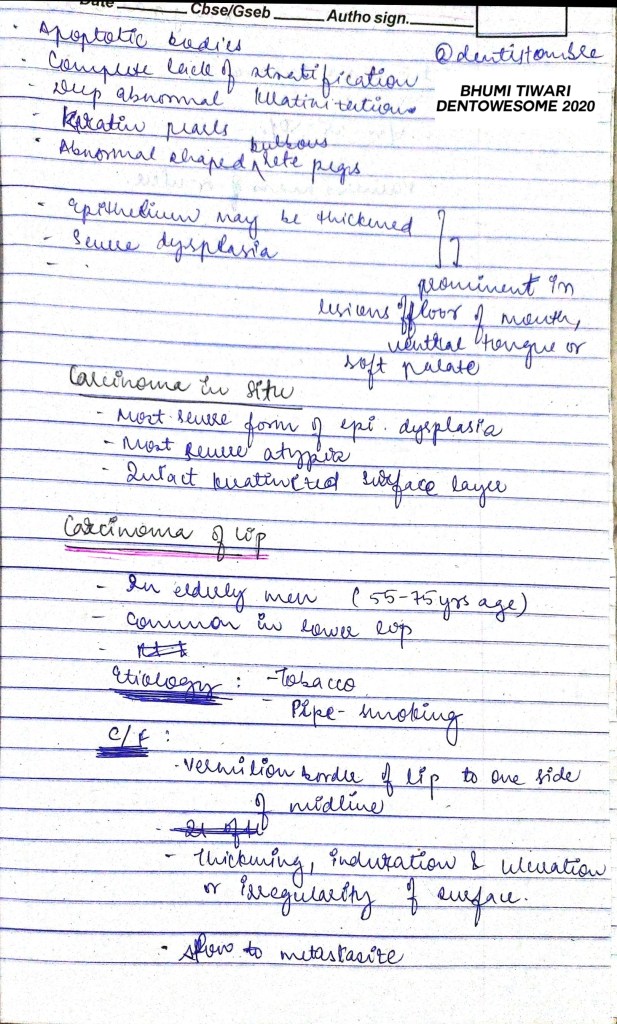 Date Cbse/Gseb Autho sign.
@dentistomsle
BHUMI TIWARI
DENTOWESOME 2020
- Apoptotic bodies
- Complete lack of stratification
- Deep abnormal keratinization
- Keratin pearls
- Abnormal shaped bulbous rete pegs
- Epithelium may be thickened
- Severe dysplasia
-
prominent in
lesions of floor of mouth,
ventral tongue or
soft palate
Carcinoma in situ
- Most severe form of epi. dysplasia
- Most severe atypia
- Intact keatinized surface layer
Carcinoma of lip
- In elderly men (55-75 yrs age)
- Common in lower lip
-
Etiology : - Tobacco
- Pipe-smoking
C/F :
- vermilion border of lip to one side
of midline
- Thickening, induration & ulceration
or irregularity of surface.
- slow to metastasize